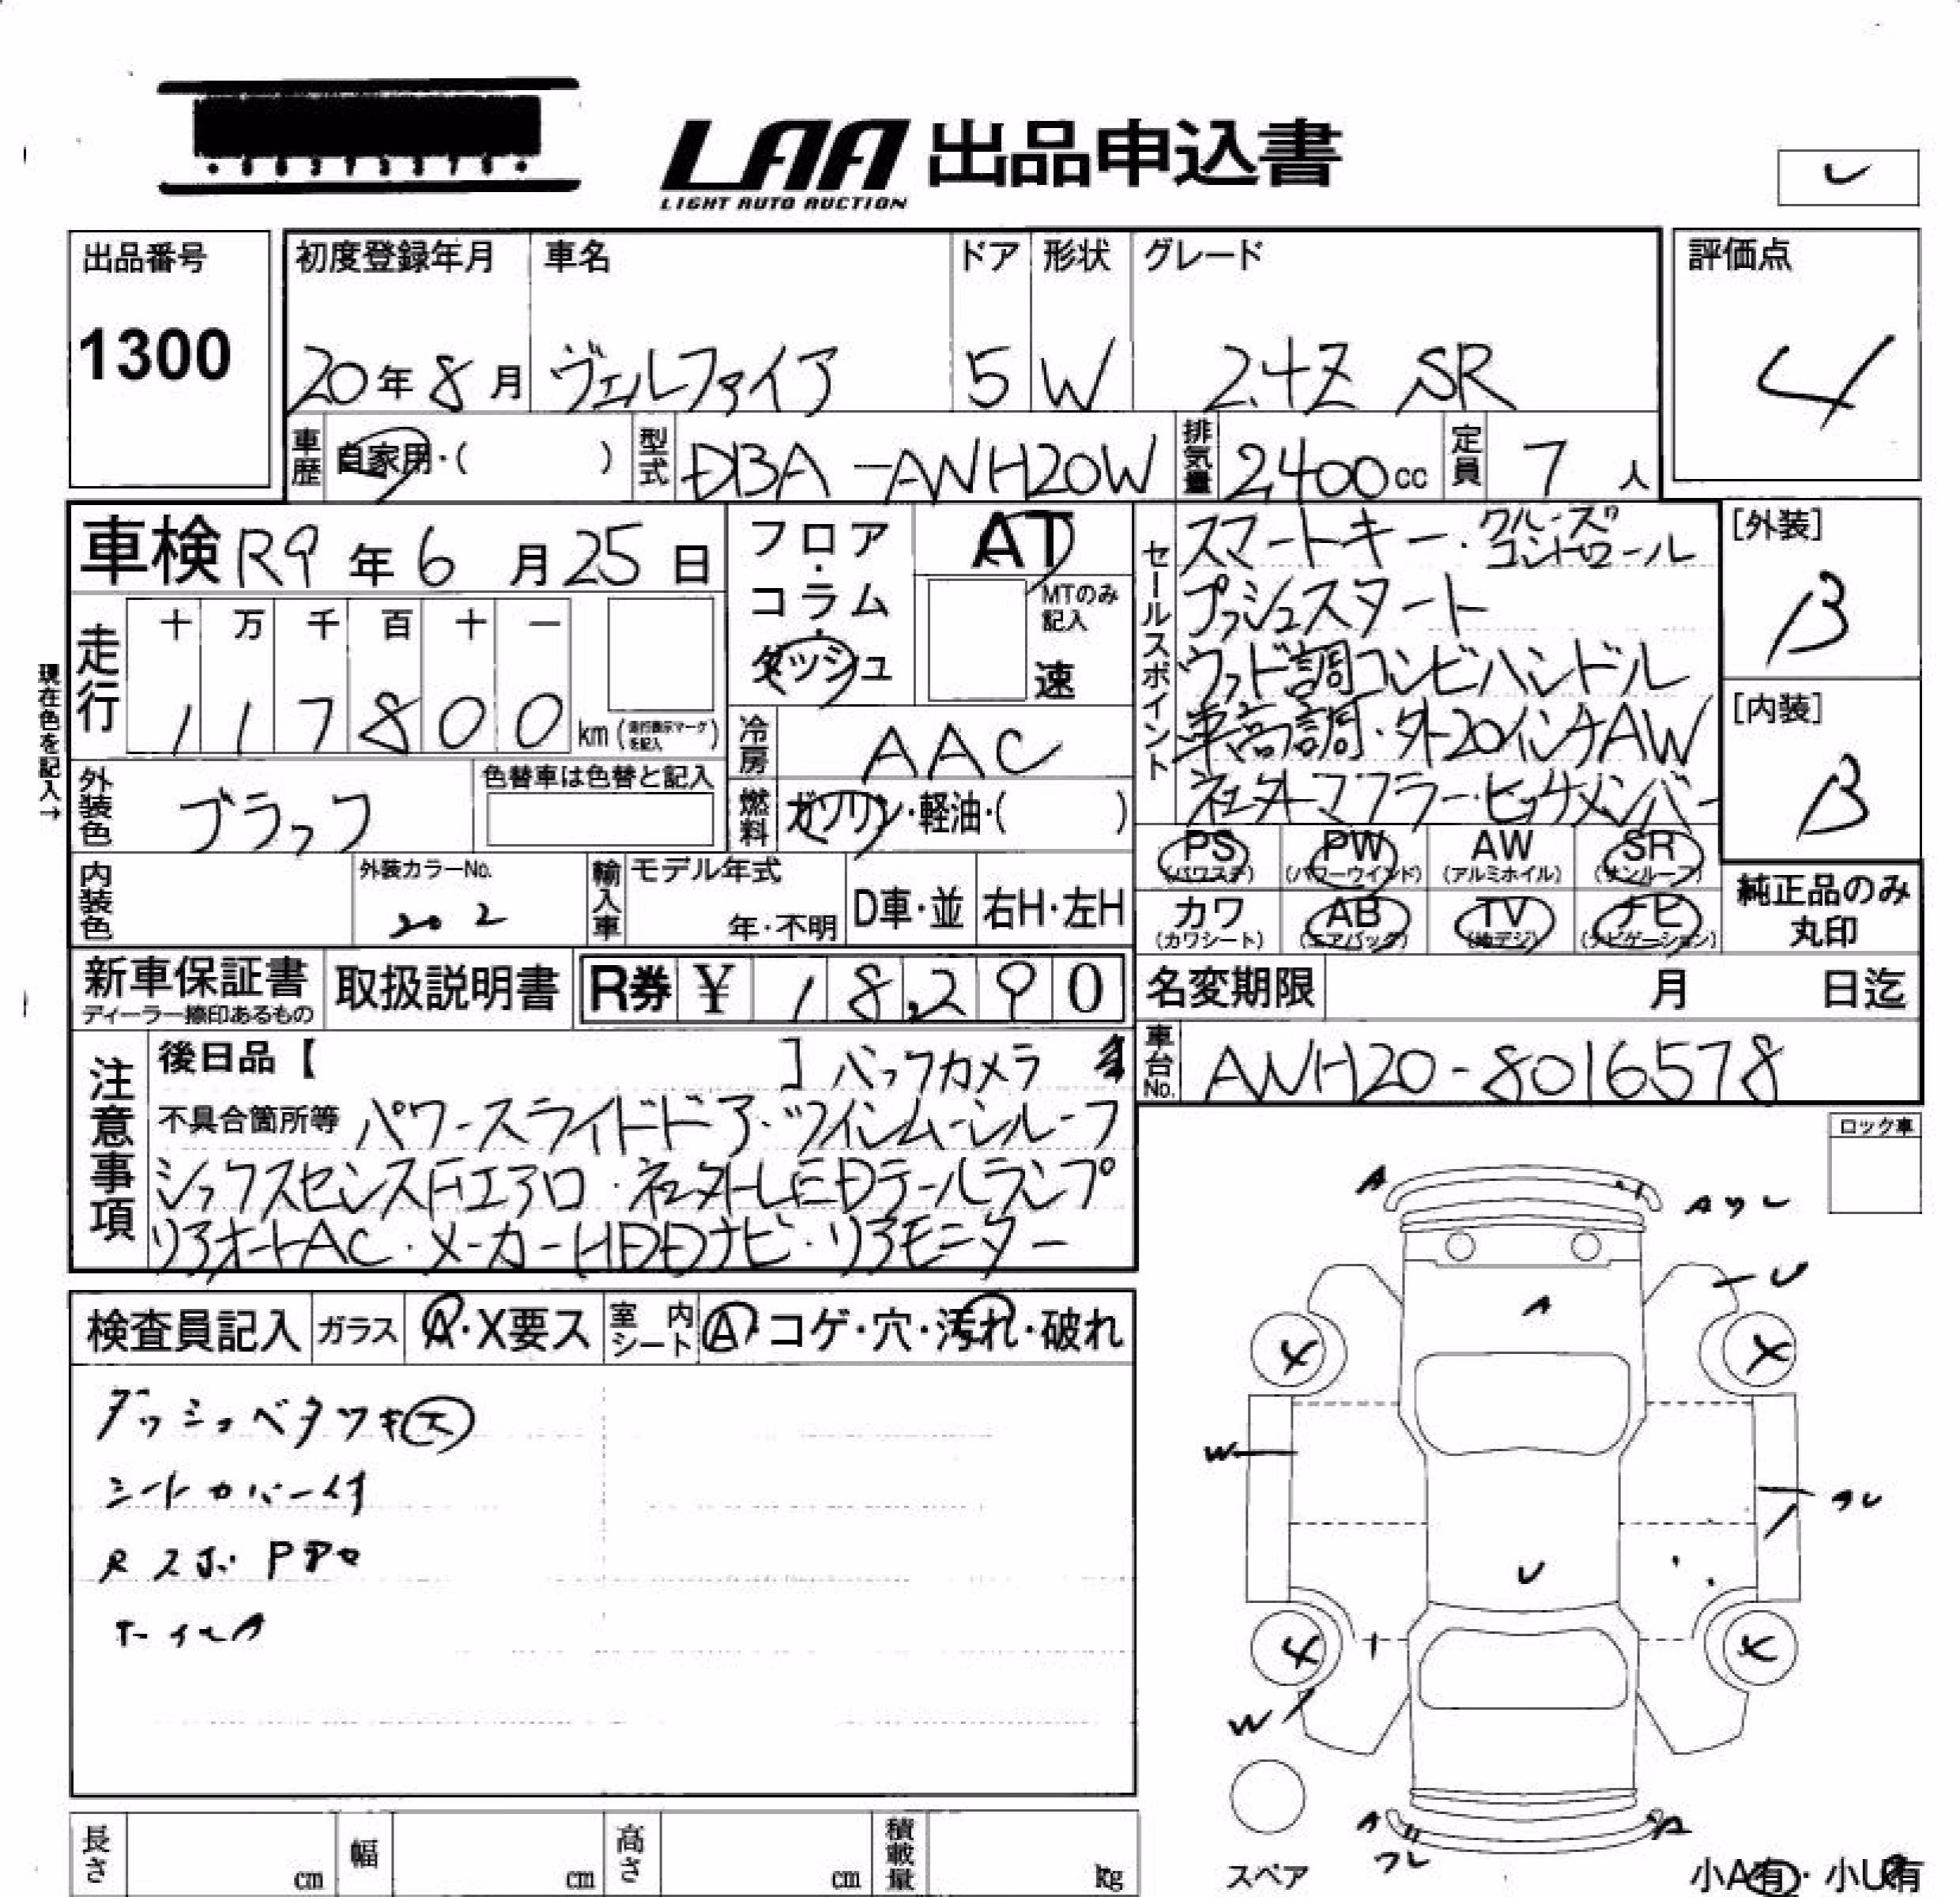 LAA 出品申込書
LIGHT AUTO AUCTION
出品番号 初度登録年月 車名 ドア 形状 グレード 評価点
1300 20年 8月 ヴェルファイア 5 W 2.4Z SR 4
車歴 自家用・( ) 型式 DBA-ANH20W 排気量 2,400cc 定員 7人
車検 R9年 6月 25日 フロア・コラム・ダッシュ AT
MTのみ記入 速
セールスポイント スマートキー・クルーズコントロール
プッシュスタート
ウッド調コンビハンドル
車高調・外20インチAW
社外マフラー・ヒッチメンバー
[外装] B
[内装] B
現在色を記入→
走行 十 万 千 百 十 一
1 1 7 8 0 0 km (走行表示マークを記入)
冷房 AAC
外装色 ブラック 色替車は色替と記入 燃料 ガソリン・軽油・( )
PS (パワステ) PW (パワーウインド) AW (アルミホイル) SR (サンルーフ)
カワ (カワシート) AB (エアバッグ) TV (地デジ) ナビ (ナビゲーション)
純正品のみ
丸印
内装色 外装カラーNo. 202 輸入車 モデル年式 年・不明 D車・並 右H・左H
新車保証書 取扱説明書 R券 ¥ 18,290 名変期限 月 日迄
ディーラー捺印あるもの
車台No. ANH20-8016578
注意事項 後日品【 】バックカメラ
不具合箇所等 パワースライドドア・ツインムーンルーフ
シックスセンスFエアロ・社外LEDテールランプ
リアオートAC・メーカーHDDナビ・リアモニター
ロック車
検査員記入 ガラス A・X要ス 室内シート A・コゲ・穴・汚れ・破れ
ダッシュベタツキ大
シートカバー付
RスポPアロ
ホイルA
A
Aワレ
U
A
X X
W
ワレ
U
X X
W
A A
ワレ
スペア
小A有・小U有
長さ cm 幅 cm 高さ cm 積載量 kg